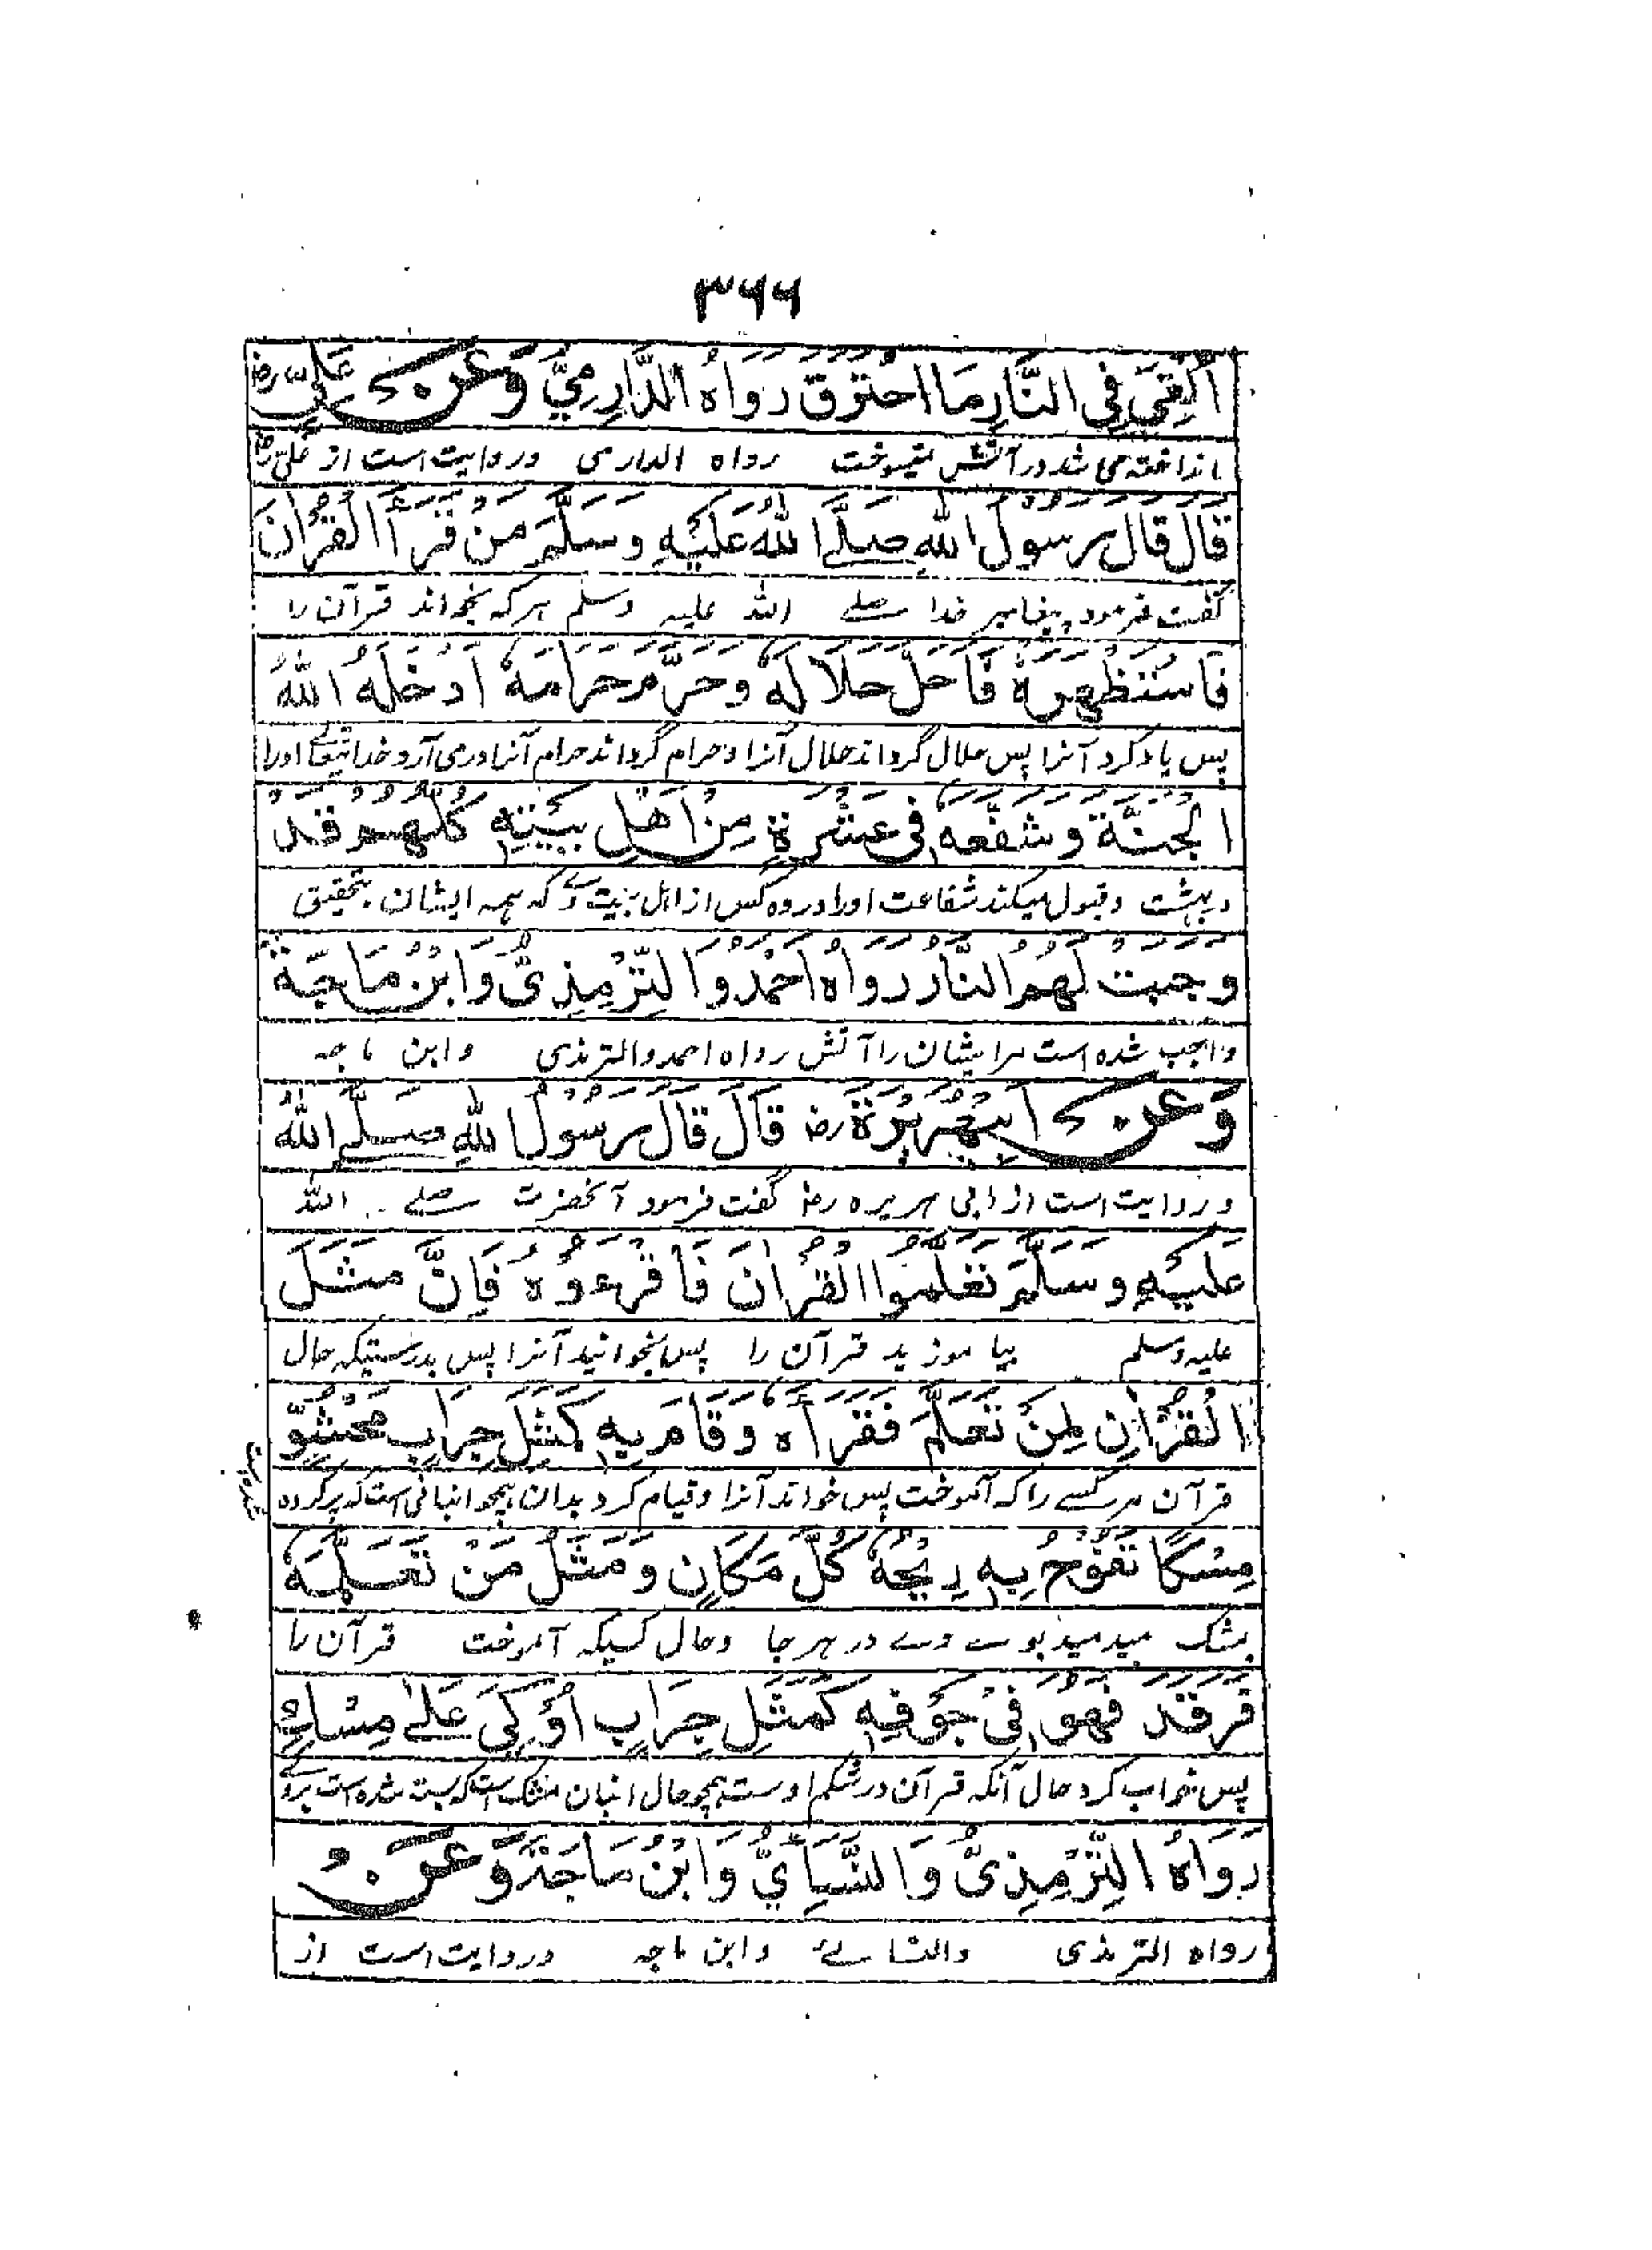 ۳۶۶
اُلْقِيَ فِي النَّارِ مَا احْتَرَقَ رَوَاهُ الدَّارِمِيُّ وَعَنْ عَلِيٍّ رض
انداخته می شد در آتش نمیسوخت رواه الدارمی وروایت است از علی رض
قَالَ قَالَ رَسُوْلُ اللهِ صَلَّے اللهُ عَلَيْهِ وَسَلَّمَ مَنْ قَرَأَ الْقُرْاٰنَ
گفت فرمود پیغامبر خدا صلے الله علیه وسلم هرکه بخواند قرآن را
فَاسْتَظْهَرَهٗ فَاَحَلَّ حَلَالَهٗ وَحَرَّمَ حَرَامَهٗ اَدْخَلَهُ اللهُ
پس یاد کرد آنرا پس حلال گرداند حلال آنرا وحرام گرداند حرام آنرا درمی آرد خدا تیعالے اورا
الْجَنَّةَ وَشَفَّعَهٗ فِي عَشَرَةٍ مِنْ اَهْلِ بَيْتِهٖ كُلُّهُمْ قَدْ
دربهشت وقبول میکند شفاعت اورا در ده کس از اهل بیت وے که همه ایشان بتحقیق
وَجَبَتْ لَهُمُ النَّارُ رَوَاهُ اَحْمَدُ وَالتِّرْمِذِيُّ وَابْنُ مَاجَةَ
واجب شده است مرایشان را آتش رواه احمد والترمذی وابن ماجه
وَعَنْ اَبِيْ هُرَيْرَةَ رض قَالَ قَالَ رَسُوْلُ اللهِ صَلَّے اللهُ
وروایت است از ابی هریره رض گفت فرمود آنحضرت صلے الله
عَلَيْهِ وَسَلَّمَ تَعَلَّمُوا الْقُرْاٰنَ فَاقْرَءُوْهُ فَاِنَّ مَثَلَ
علیه وسلم بیا موزید قرآن را پس بخوانید آنرا پس بدرستیکه حال
الْقُرْاٰنِ لِمَنْ تَعَلَّمَ فَقَرَأَهٗ وَقَامَ بِهٖ كَمَثَلِ جِرَابٍ مَحْشُوٍّ
قرآن مر کسے را که آموخت پس خواند آنرا وقیام کرد بدان همچو انبانی است که پر کرده
شده است
مِسْكًا تَفُوْحُ بِهٖ رِيْحُهٗ كُلَّ مَكَانٍ وَمَثَلُ مَنْ تَعَلَّمَهٗ
بمشک میدمد بوے وے در هر جا وحال کسیکه آموخت قرآن را
فَرَقَدَ فَهُوَ فِيْ جَوْفِهٖ كَمَثَلِ جِرَابٍ اُوْكِيَ عَلٰے مِسْكٍ
پس خواب کرد حال آنکه قرآن در شکم اوست همچو حال انبان مشک است که بست شده است بروے
رَوَاهُ التِّرْمِذِيُّ وَالنَّسَائِيُّ وَابْنُ مَاجَةَ وَعَنْ
رواه الترمذی والنسائے وابن ماجه وروایت است از